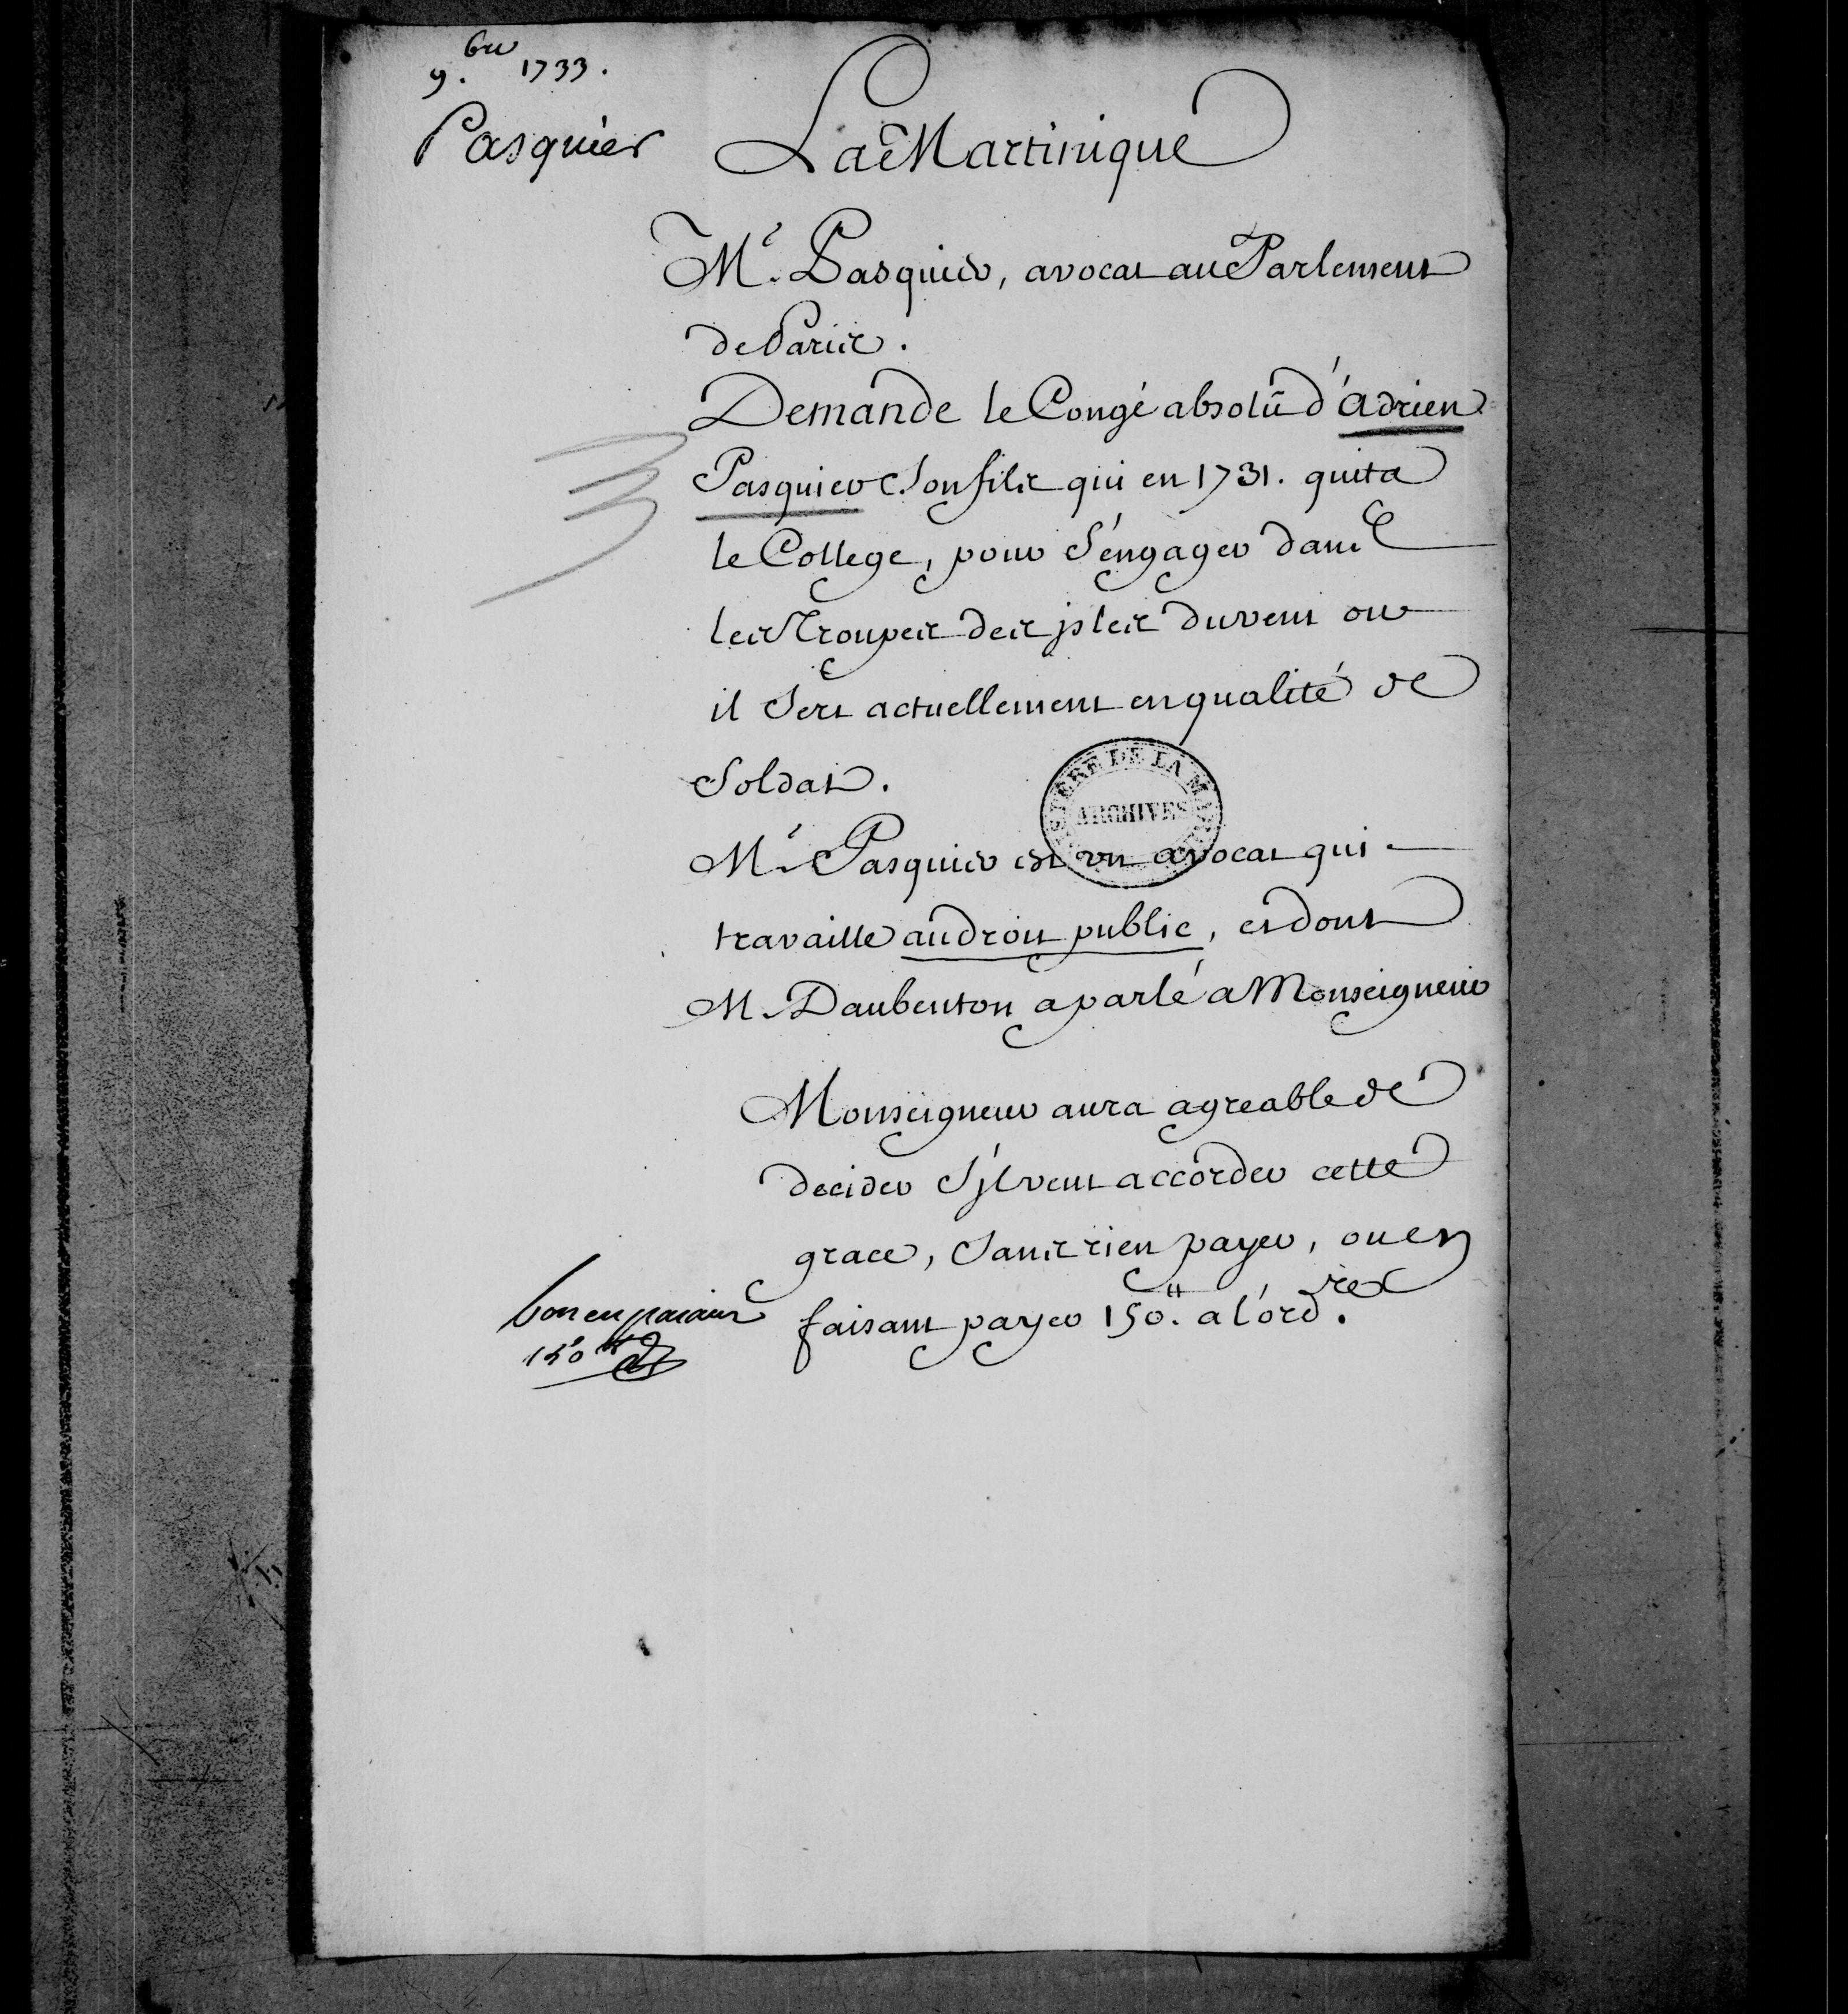 9.bre 1733.
Pasquier
La Martinique
Me. Pasquier, avocat au Parlement
de Paris.
Demande le Congé absolu d'adrien
Pasquier Son fils qui en 1731. quita
le College, pour S'engager dans
les Troupes des jsles du vent ou
il Sert actuellement en qualité de
Soldat.
STERE DE LA MA
ARCHIVES
Me. Pasquier est un avocat qui
travaille au droit public, et dont
M. Daubenton a parlé a Monseigneur
Monseigneur aura agreable de
decider S'jl veut accorder cette
grace, Sans rien payer, ou en
faisant payer 150.tt a l'ordre.
bon en paiant
150tt